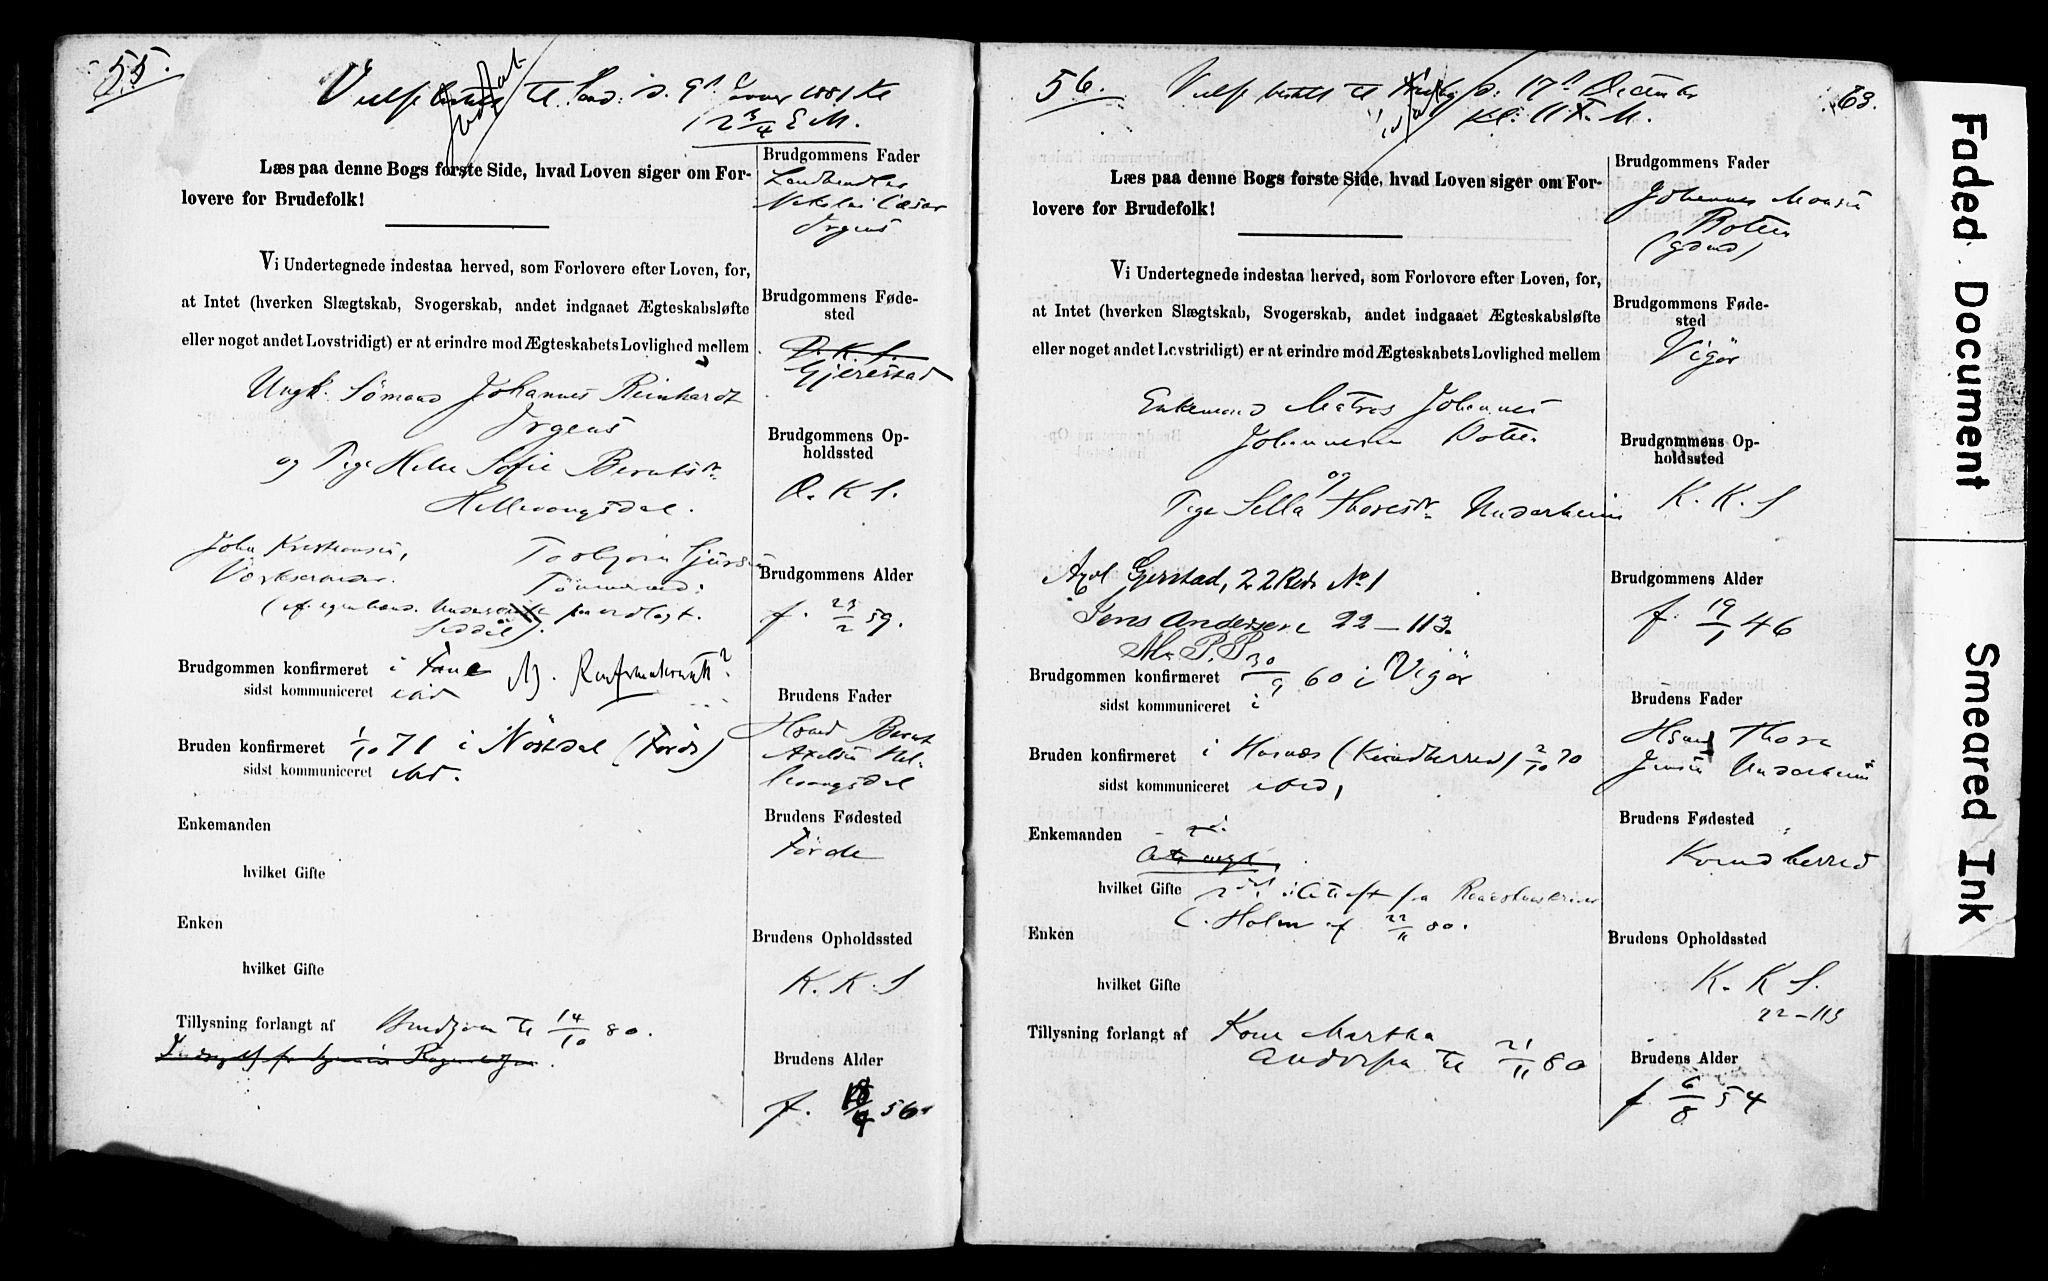 55.
Vielse bestilt til d. 9de Januar 1881 Kl
12 3/4 E M.
Læs paa denne Bogs første Side, hvad Loven siger om For-
lovere for Brudefolk!
Vi Undertegnede indestaa herved, som Forlovere efter Loven, for,
at Intet (hverken Slægtskab, Svogerskab, andet indgaaet Ægteskabsløfte
eller noget andet Lovstridigt) er at erindre mod Ægteskabets Lovlighed mellem
Ungk. Sömand Johannes Reinhardt
Irgens
og Pige Helene Sofie Berntsdr
Hellevangsdal.
John Kristiansen,
Torbjörn Sjurs
Tömmermand:
Brudgommen konfirmeret i Fane NB. Konfirmationsatt?
sidst kommuniceret ibid
Bruden konfirmeret 1/10 71 i Nösdal (Förde)
sidst kommuniceret ibid.
Enkemanden
hvilket Gifte
Enken
hvilket Gifte
Tillysning forlangt af Brudgom til 14/10 80.
Brudgommens Fader
Landhandler
Nikolai Cæsar
Irgens
Brudgommens Føde-
sted
D. K. S.
Gjerestad
Brudgommens Op-
holdssted
D. K. S.
Brudgommens Alder
f. 23/2 59.
Brudens Fader
Hsmd Bernt
Axelsen Hel-
levangsdal
Brudens Fødested
Förde
Brudens Opholdssted
K. K. S
Brudens Alder
f. 56
56.
63.
Vielse bestilt til d: 17de December
Kl. 11 F. M.
Læs paa denne Bogs første Side, hvad Loven siger om For-
lovere for Brudefolk!
Vi Undertegnede indestaa herved, som Forlovere efter Loven, for,
at Intet (hverken Slægtskab, Svogerskab, andet indgaaet Ægteskabsløfte
eller noget andet Lovstridigt) er at erindre mod Ægteskabets Lovlighed mellem
Enkemand Matros Johannes
Johannesen Botten
og
Pige Sella Thoresdr Underheim
Axel Gjerstad, 22 Rode No 1
Jens Andersen 22 — 113.
M. P. P.
Brudgommen konfirmeret 30/9 60 i Vigör
sidst kommuniceret i
Bruden konfirmeret i Husnæs (Kvindherred) 2/10 70
sidst kommuniceret ibid,
Enkemanden
hvilket Gifte 2det. Attest fra
C. Holm af 22/11 80.
Enken
hvilket Gifte
Tillysning forlangt af Kone Martha
Andersen til 21/11 80
Brudgommens Fader
Johannes Monsen
Botten
(gdmd)
Brudgommens Føde-
sted
Vigör
Brudgommens Op-
holdssted
K. K. S
Brudgommens Alder
f. 19/1 46
Brudens Fader
Hsmd Thore
Jensen Underheim
Brudens Fødested
Kvindherred
Brudens Opholdssted
K. K S.
22—113
Brudens Alder
f. 6/8 54
Faded Document
Smeared Ink